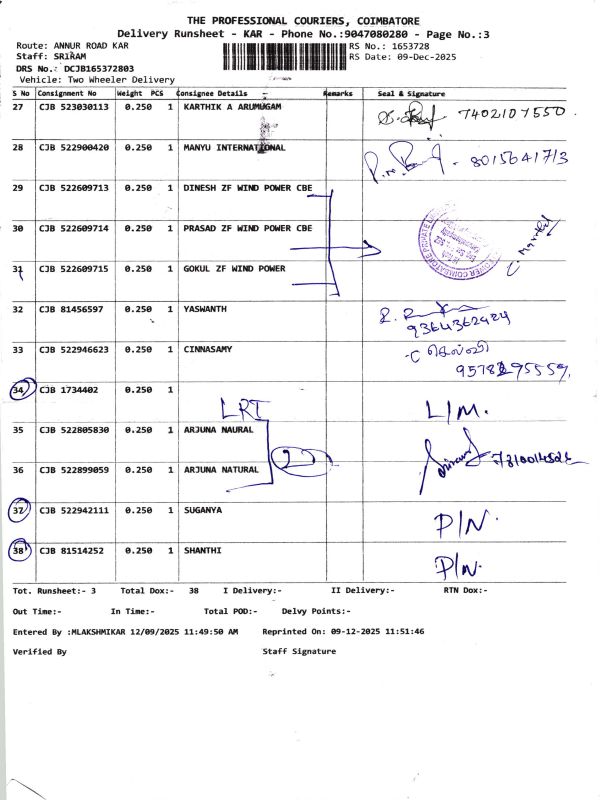 THE PROFESSIONAL COURIERS, COIMBATORE
Delivery Runsheet - KAR - Phone No.:9047080280 - Page No.:3
Route: ANNUR ROAD KAR RS No.: 1653728
Staff: SRIRAM RS Date: 09-Dec-2025
DRS No.: DCJB165372803
Vehicle: Two Wheeler Delivery
S No Consignment No Weight PCS Consignee Details Remarks Seal & Signature
27 CJB 523030113 0.250 1 KARTHIK A ARUMUGAM 7402107550
28 CJB 522900420 0.250 1 MANYU INTERNATIONAL 8015641713
29 CJB 522609713 0.250 1 DINESH ZF WIND POWER CBE
30 CJB 522609714 0.250 1 PRASAD ZF WIND POWER CBE
31 CJB 522609715 0.250 1 GOKUL ZF WIND POWER
32 CJB 81456597 0.250 1 YASWANTH
9364362924
33 CJB 522946623 0.250 1 CINNASAMY
34 CJB 1734402 0.250 1 LRT L/M.
35 CJB 522805830 0.250 1 ARJUNA NAURAL
36 CJB 522899059 0.250 1 ARJUNA NATURAL
37 CJB 522942111 0.250 1 SUGANYA P/N.
38 CJB 81514252 0.250 1 SHANTHI P/N.
Tot. Runsheet:- 3 Total Dox:- 38 I Delivery:- II Delivery:- RTN Dox:-
Out Time:- In Time:- Total POD:- Delvy Points:-
Entered By :MLAKSHMIKAR 12/09/2025 11:49:50 AM Reprinted On: 09-12-2025 11:51:46
Verified By Staff Signature